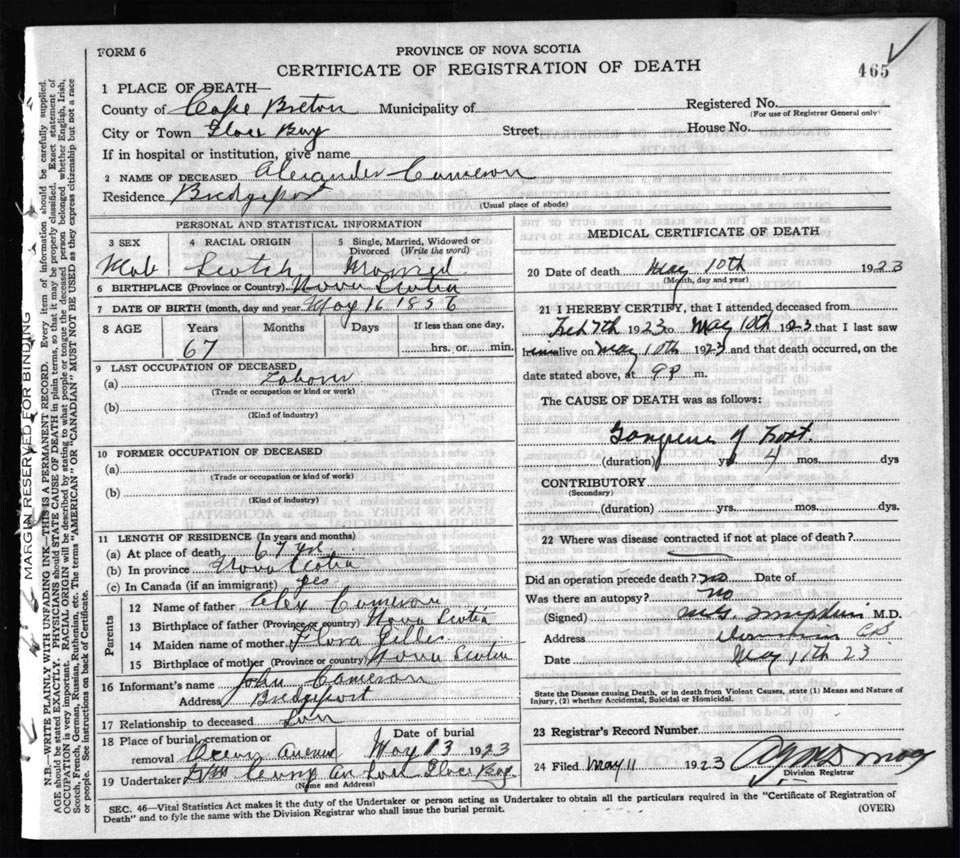 FORM 6
PROVINCE OF NOVA SCOTIA
CERTIFICATE OF REGISTRATION OF DEATH
465
1 PLACE OF DEATH—
County of Cape Breton Municipality of Registered No.
(For use of Registrar General only)
City or Town Glace Bay Street House No.
If in hospital or institution, give name
2 NAME OF DECEASED Alexander Cameron
Residence Bridgeport
(Usual place of abode)
PERSONAL AND STATISTICAL INFORMATION
3 SEX 4 RACIAL ORIGIN 5 Single, Married, Widowed or Divorced (Write the word)
Male Scotch Married
6 BIRTHPLACE (Province or Country) Nova Scotia
7 DATE OF BIRTH (month, day and year) May 16 1856
8 AGE Years Months Days If less than one day,
67 hrs. or min.
9 LAST OCCUPATION OF DECEASED
(a) Laborer
(Trade or occupation or kind or work)
(b)
(Kind of industry)
10 FORMER OCCUPATION OF DECEASED
(a)
(Trade or occupation or kind of work)
(b)
(Kind of industry)
11 LENGTH OF RESIDENCE (In years and months)
(a) At place of death 67 yrs
(b) In province Nova Scotia
(c) In Canada (if an immigrant) yes
Parents
12 Name of father Alex Cameron
13 Birthplace of father (Province or country) Nova Scotia
14 Maiden name of mother Flora Gillis
15 Birthplace of mother (Province or country) Nova Scotia
16 Informant's name John Cameron
Address Bridgeport
17 Relationship to deceased Son
18 Place of burial, cremation or removal Date of burial
Ocean Avenue May 13 1923
19 Undertaker Glace Bay
(Name and Address)
MEDICAL CERTIFICATE OF DEATH
20 Date of death May 10th 1923
(Month, day and year)
21 I HEREBY CERTIFY, that I attended deceased from
Feb 7th 1923 to May 10th 1923 that I last saw
him alive on May 10th 1923 and that death occurred, on the
date stated above, at 9 P. m.
The CAUSE OF DEATH was as follows:
Gangrene of Foot.
(duration) yrs. 4 mos. dys
CONTRIBUTORY
(Secondary)
(duration) yrs. mos. dys.
22 Where was disease contracted if not at place of death?
Did an operation precede death? no Date of
Was there an autopsy? no
(Signed) Tompkins M.D.
Address Dominion CB
Date May 11th 23
State the Disease causing Death, or in death from Violent Causes, state (1) Means and Nature of
Injury, (2) whether Accidental, Suicidal or Homicidal.
23 Registrar's Record Number
24 Filed May 11 1923
Division Registrar
SEC. 46—Vital Statistics Act makes it the duty of the Undertaker or person acting as Undertaker to obtain all the particulars required in the "Certificate of Registration of
Death" and to fyle the same with the Division Registrar who shall issue the burial permit. (OVER)
MARGIN RESERVED FOR BINDING
N.B.—WRITE PLAINLY WITH UNFADING INK—THIS IS A PERMANENT RECORD. Every item of information should be carefully supplied.
AGE should be stated EXACTLY. PHYSICIANS should STATE CAUSE OF DEATH in plain terms, so that it may be properly classified. Exact statement of
OCCUPATION is very important. RACIAL ORIGIN will be described by stating to what people or tongue the deceased person belonged whether English, Irish,
Scotch, French, German, Russian, Ruthenian, etc. The terms "AMERICAN" OR "CANADIAN" MUST NOT BE USED as they express citizenship but not a race
or people. See instructions on back of Certificate.